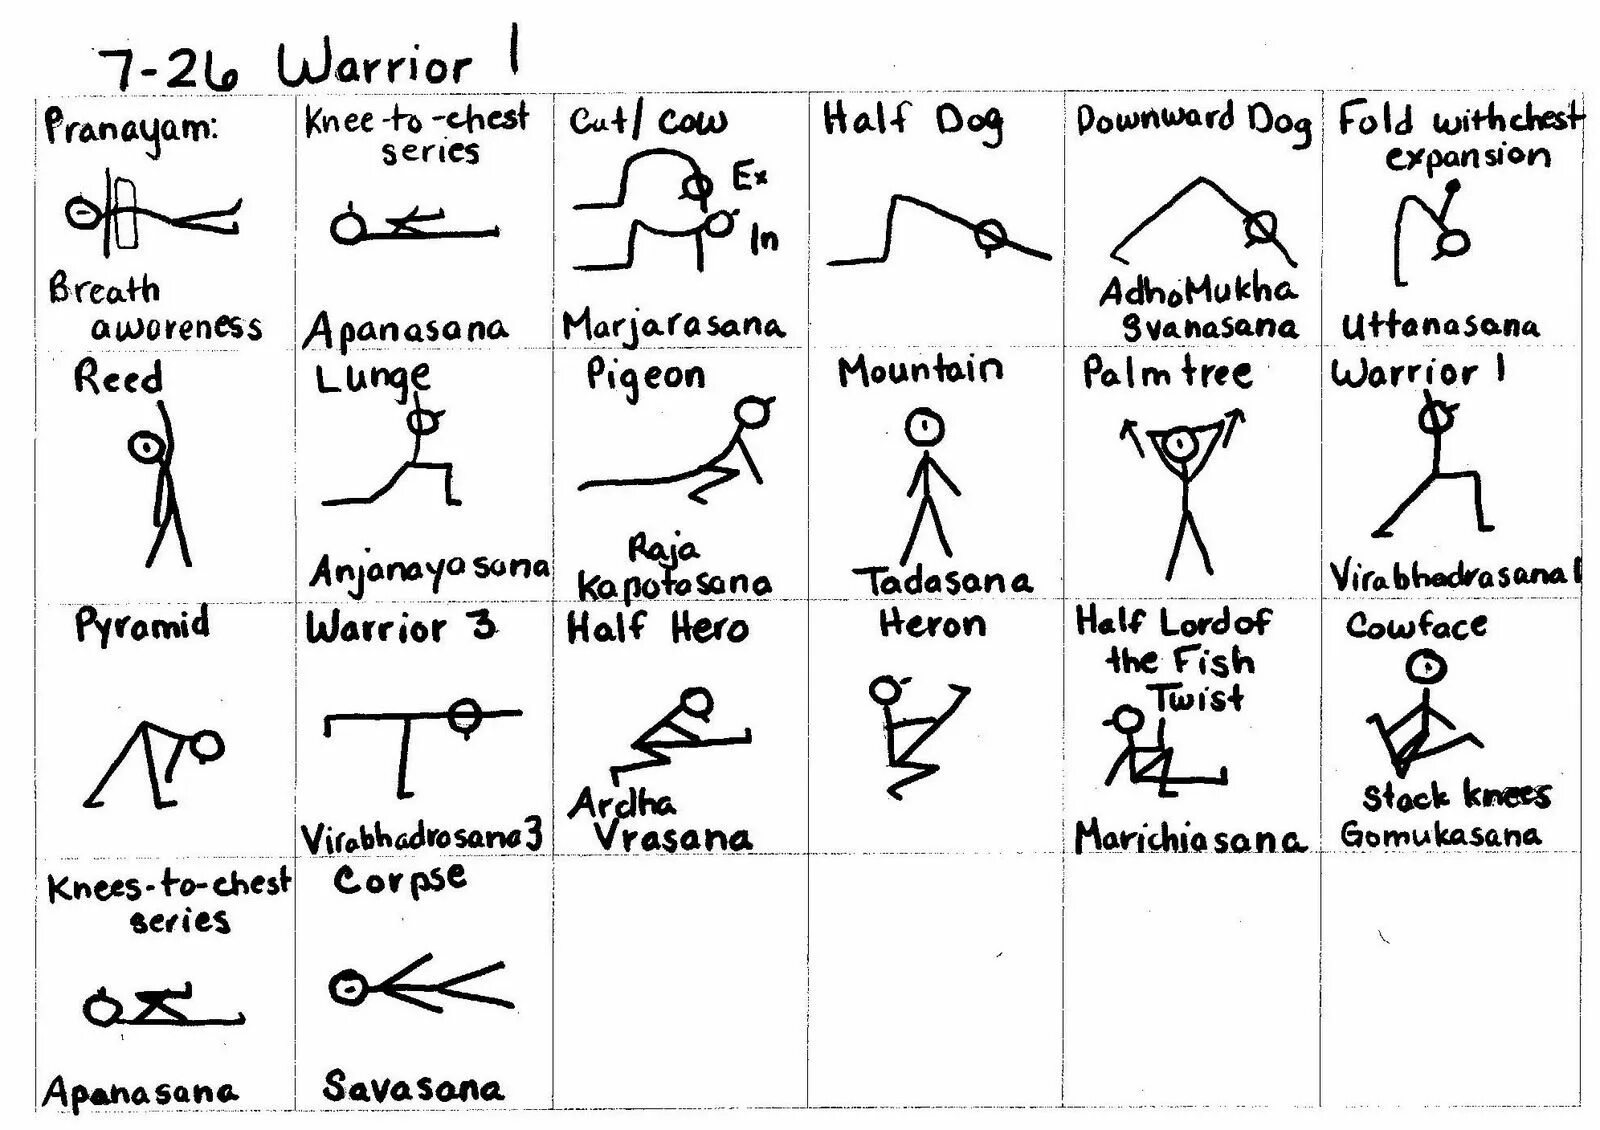 7-26 Warrior 1
Pranayam:
Breath
awareness
Knee-to-chest
series
Apanasana
Cat/Cow
Ex
In
Marjarasana
Half Dog
Downward Dog
Adho Mukha
Svanasana
Fold with chest
expansion
Uttanasana
Reed
Lunge
Anjanayasana
Pigeon
Raja
Kapotasana
Mountain
Tadasana
Palm tree
Warrior 1
Virabhadrasana 1
Pyramid
Warrior 3
Virabhadrasana 3
Half Hero
Ardha
Vrasana
Heron
Half Lord of
the Fish
Twist
Marichiasana
Cowface
Stack knees
Gomukasana
Knees-to-chest
series
Apanasana
Corpse
Savasana